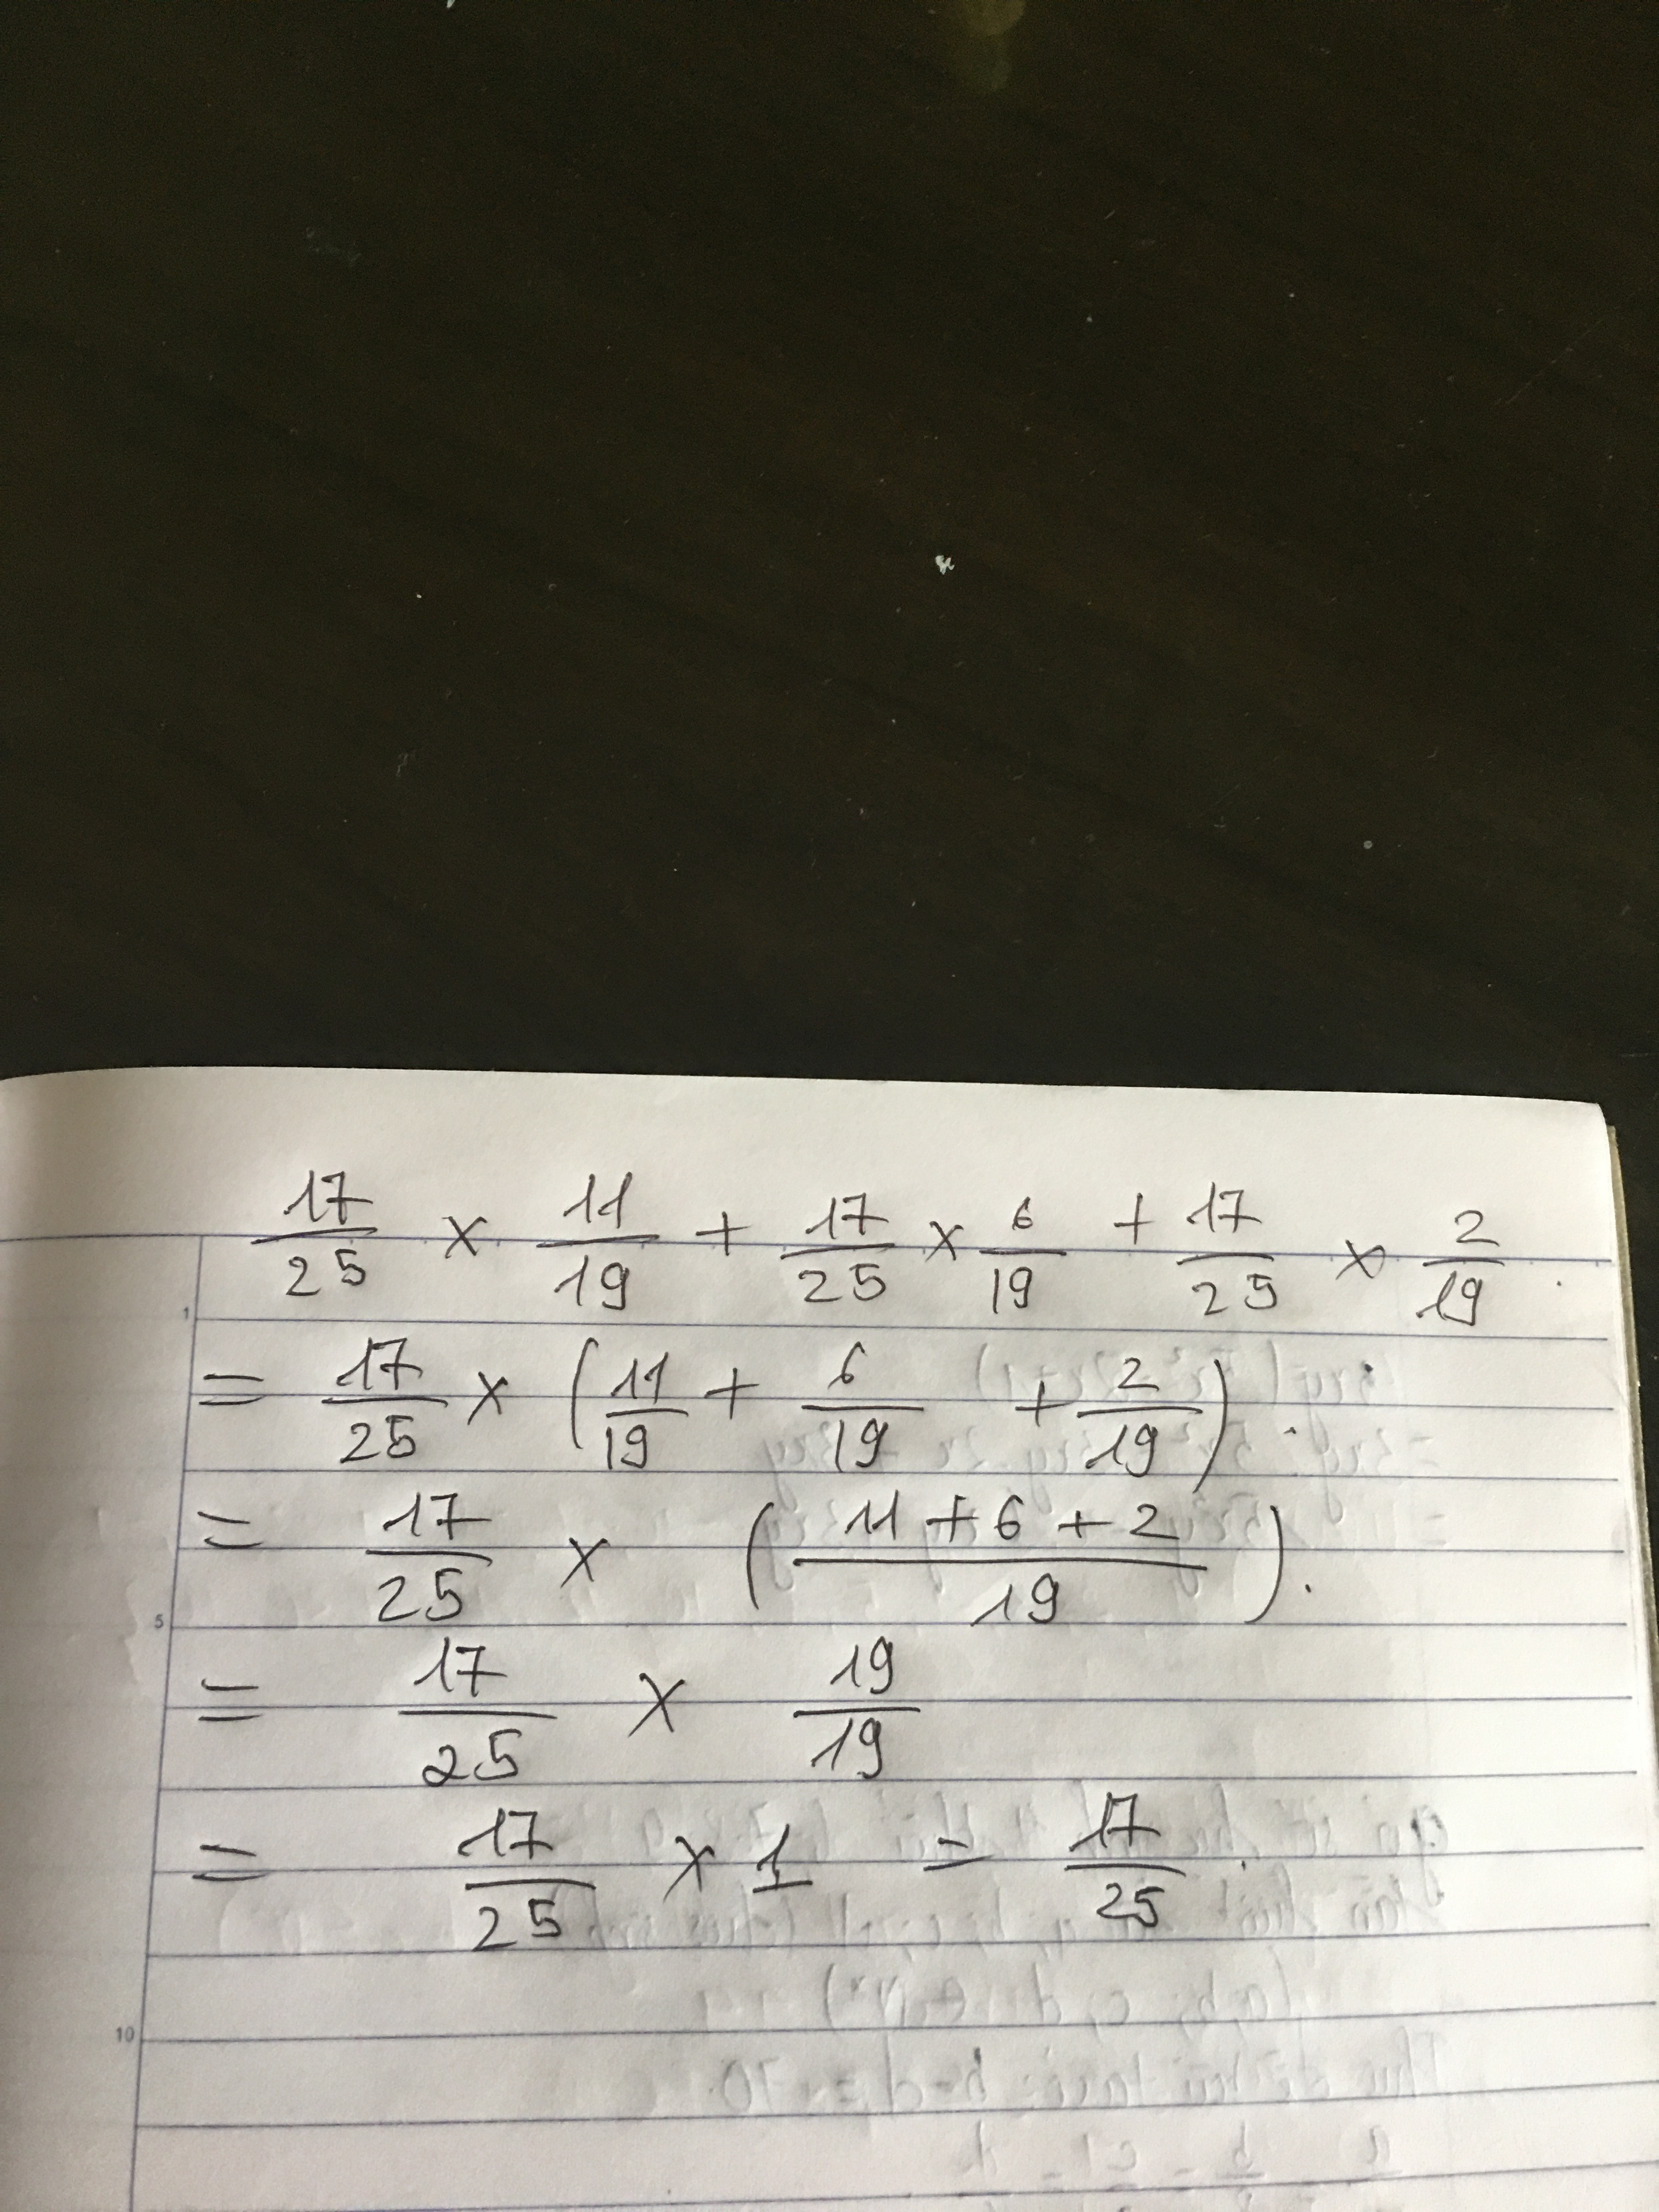 17/25 × 11/19 + 17/25 × 6/19 + 17/25 × 2/19 .
1
= 17/25 × (11/19 + 6/19 + 2/19) .
= 17/25 × ((11 + 6 + 2)/19) .
5
= 17/25 × 19/19
= 17/25 × 1 = 17/25 .
10